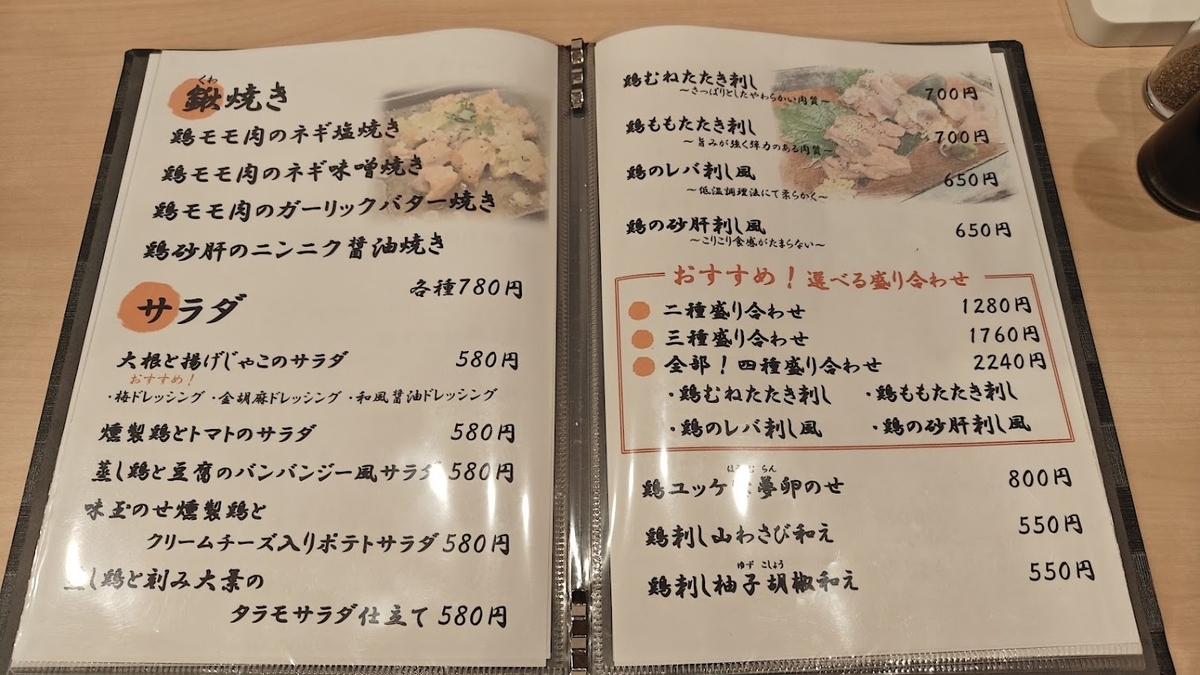 くわ
鍬焼き
鶏モモ肉のネギ塩焼き
鶏モモ肉のネギ味噌焼き
鶏モモ肉のガーリックバター焼き
鶏砂肝のニンニク醤油焼き
各種780円
サラダ
大根と揚げじゃこのサラダ 580円
おすすめ!
・梅ドレッシング・金胡麻ドレッシング・和風醤油ドレッシング
燻製鶏とトマトのサラダ 580円
蒸し鶏と豆腐のバンバンジー風サラダ 580円
味玉のせ燻製鶏と
クリームチーズ入りポテトサラダ 580円
し鶏と刻み大葉の
タラモサラダ仕立て 580円
鶏むねたたき刺し 700円
〜さっぱりとしたやわらかい肉質〜
鶏ももたたき刺し 700円
〜旨みが強く弾力のある肉質〜
鶏のレバ刺し風 650円
〜低温調理法にて柔らかく〜
鶏の砂肝刺し風 650円
〜こりこり食感がたまらない〜
おすすめ!選べる盛り合わせ
二種盛り合わせ 1280円
三種盛り合わせ 1760円
全部!四種盛り合わせ 2240円
・鶏むねたたき刺し ・鶏ももたたき刺し
・鶏のレバ刺し風 ・鶏の砂肝刺し風
らん
鶏ユッケ 夢卵のせ 800円
鶏刺し山わさび和え 550円
ゆず こしょう
鶏刺し柚子胡椒和え 550円